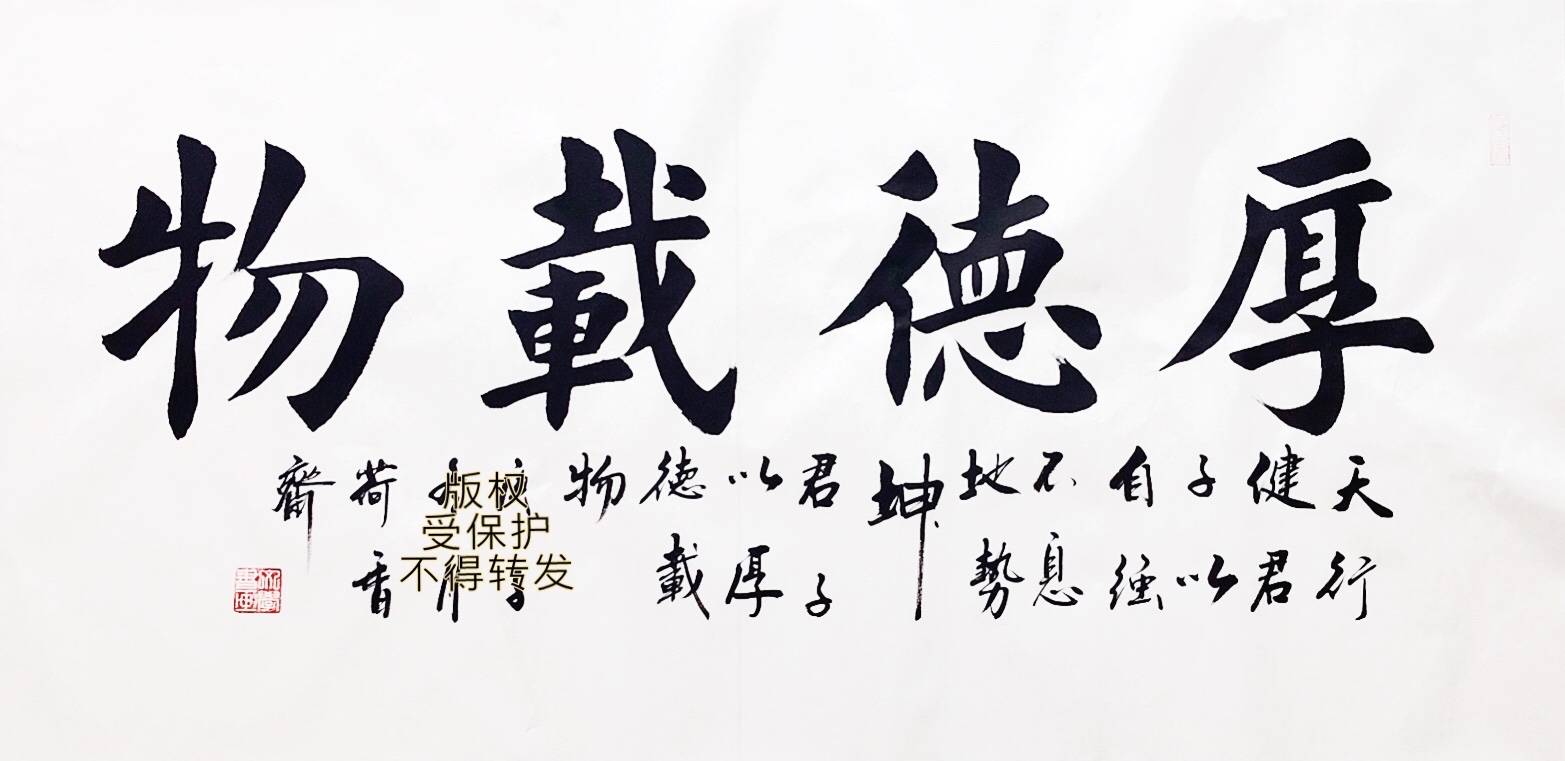 厚德載物
天行
健君
子以
自強
不息
地勢
坤
君子
以厚
德載
物
荷香
齋
版权
受保护
不得转发